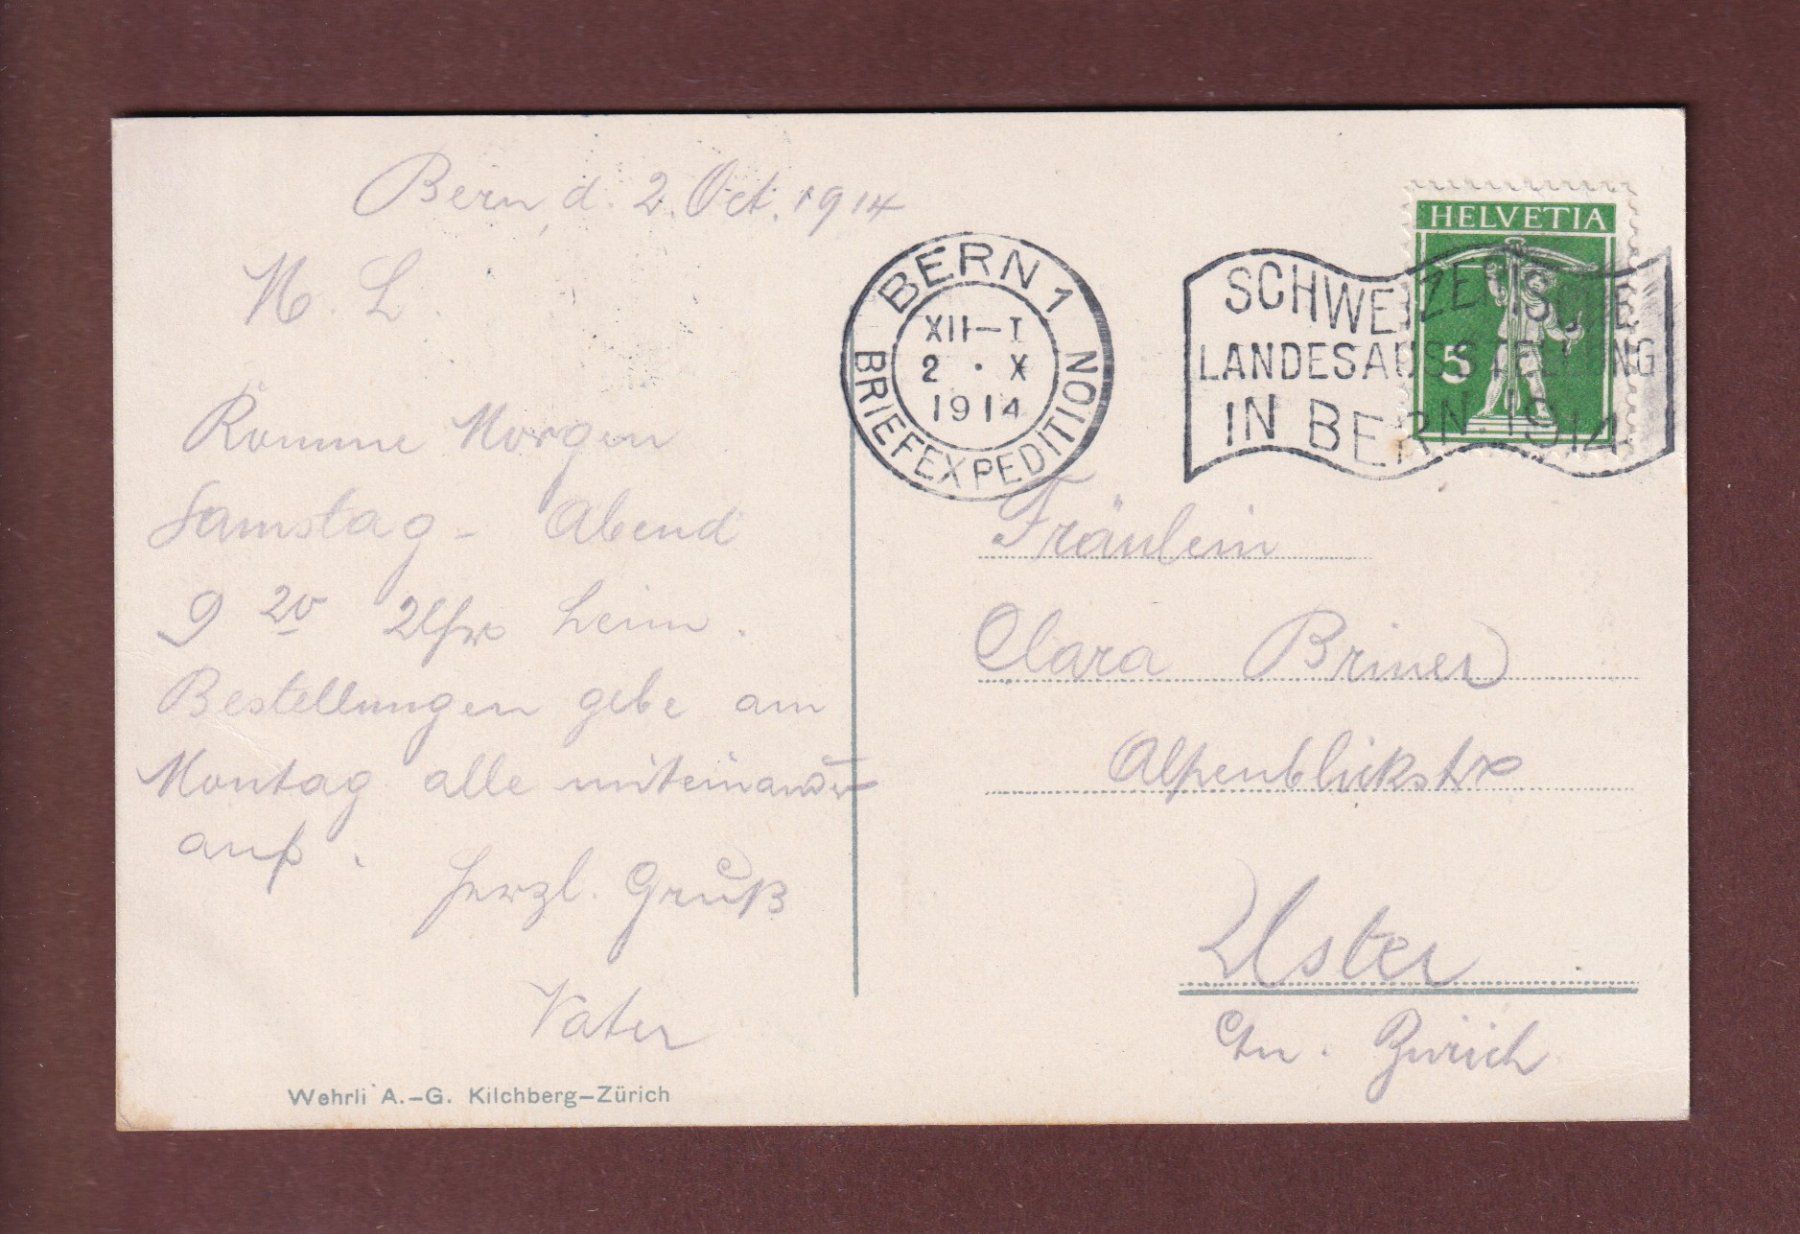 Bern, d. 2. Oct. 1914
M. L.
Komme Morgen
Samstag - Abend
9 20 Uhr heim.
Bestellungen gebe am
Montag alle miteinander
auf.
Herzl. Gruß
Vater
Wehrli A.-G. Kilchberg-Zürich
BERN 1
XII-I
2 . X
1914
BRIEFEXPEDITION
SCHWEIZERISCHE
LANDESAUSSTELLUNG
IN BERN. 1914
HELVETIA
5
Fräulein
Clara Briner
Alpenblickstr
Uster
Ctn. Zürich